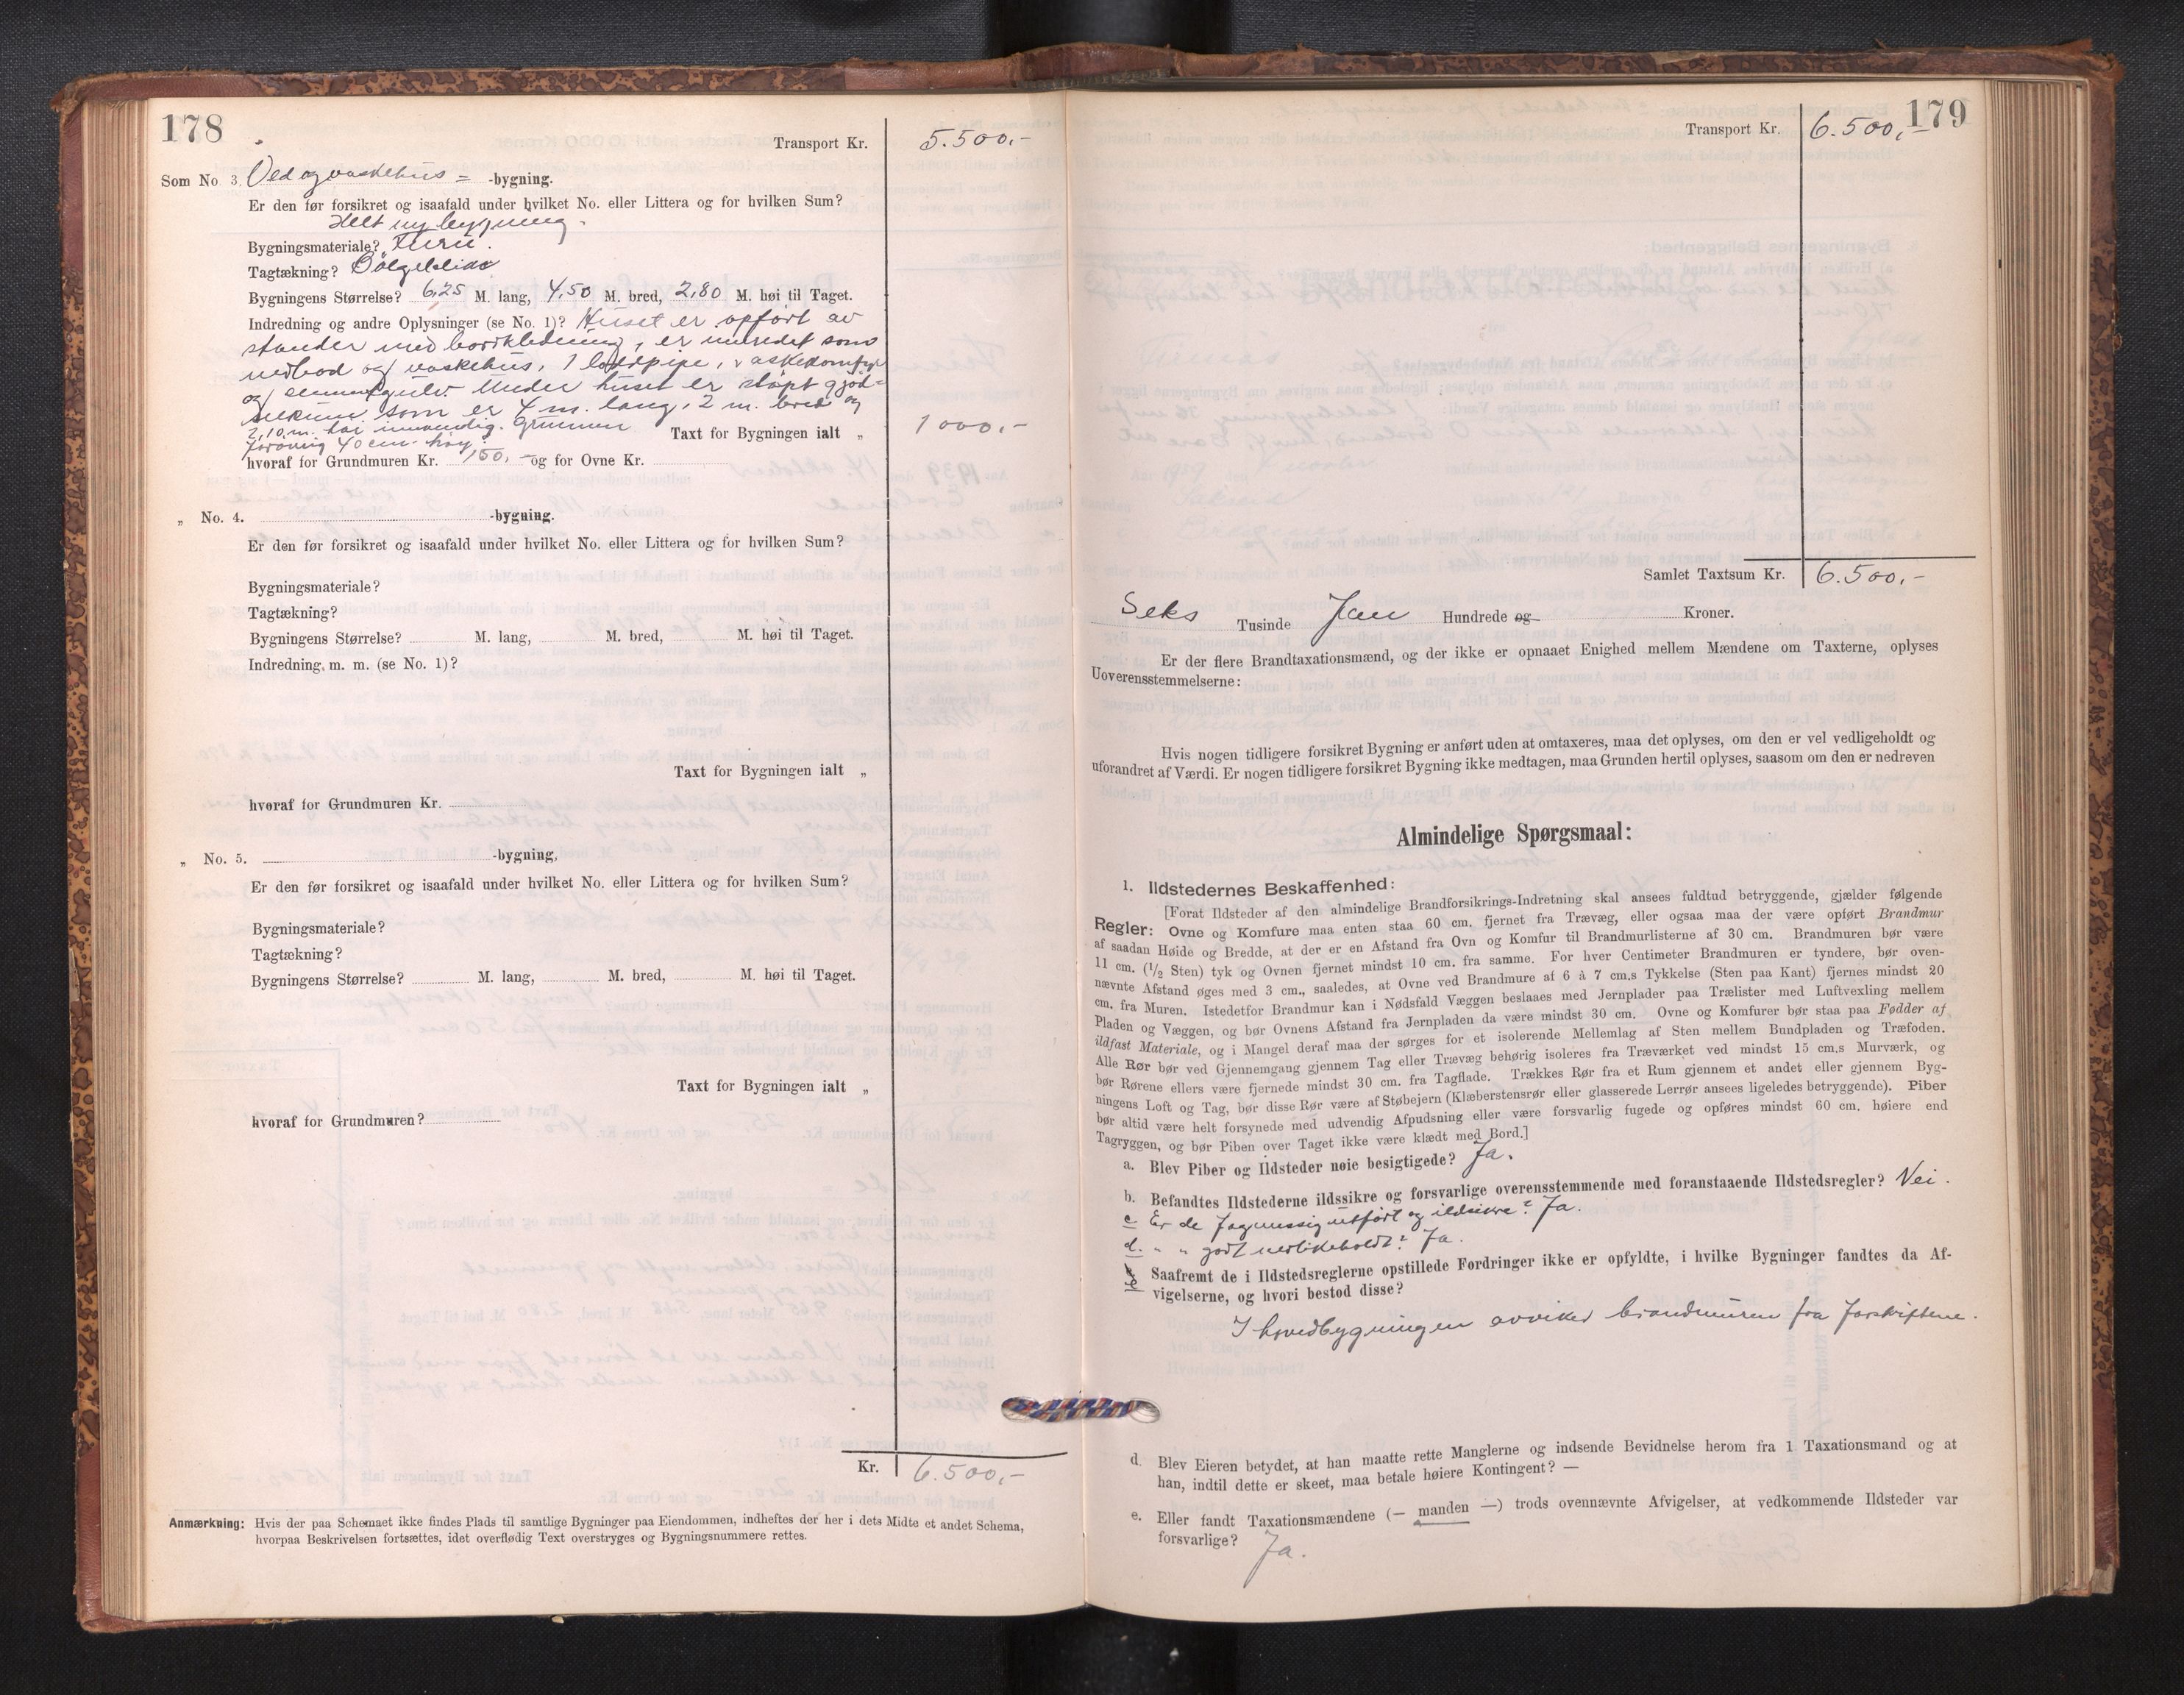 178
Transport Kr. 5.500,-
Som No. 3. Ved og vaskehus = -bygning.
Er den før forsikret og isaafald under hvilket No. eller Littera og for hvilken Sum?
Helt ny bygning.
Bygningsmateriale? Furu.
Tagtækning? Bölgeblikk
Bygningens Størrelse? 6,25 M. lang, 4,50 M. bred, 2,80 M. høi til Taget.
Indredning og andre Oplysninger (se No. 1)? Huset er opført av
stender med bordkledning, er innredet som
vedbod og vaskehus, 1 loddpipe, vaskekomfyr
og sementgulv. Under huset er støpt gjød-
selkum som er 4 m. lang, 2 m. bred og
2,10 m. høi innvendig. Grunnmur
forøvrig 40 cm. høy.
Taxt for Bygningen ialt „ 1000,-
hvoraf for Grundmuren Kr. 150,- og for Ovne Kr.
„ No. 4. -bygning.
Er den før forsikret og isaafald under hvilket No. eller Littera og for hvilken Sum?
Bygningsmateriale?
Tagtækning?
Bygningens Størrelse? M. lang, M. bred, M. høi til Taget.
Indredning, m. m. (se No. 1)?
Taxt for Bygningen ialt „
hvoraf for Grundmuren Kr.
„ No. 5. -bygning,
Er den før forsikret og isaafald under hvilket No. eller Littera og for hvilken Sum?
Bygningsmateriale?
Tagtækning?
Bygningens Størrelse? M. lang, M. bred, M. høi til Taget.
Taxt for Bygningen ialt „
hvoraf for Grundmuren?
Kr. 6.500,-
Anmærkning: Hvis der paa Schemaet ikke findes Plads til samtlige Bygninger paa Eiendommen, indheftes der her i dets Midte et andet Schema,
hvorpaa Beskrivelsen fortsættes, idet overflødig Text overstryges og Bygningsnummere rettes.
179
Transport Kr. 6.500,-
Samlet Taxtsum Kr. 6.500,-
Seks Tusinde Fem Hundrede og Kroner.
Er der flere Brandtaxationsmænd, og der ikke er opnaaet Enighed mellem Mændene om Taxterne, oplyses
Uoverensstemmelserne:
Hvis nogen tidligere forsikret Bygning er anført uden at omtaxeres, maa det oplyses, om den er vel vedligeholdt og
uforandret af Værdi. Er nogen tidligere forsikret Bygning ikke medtagen, maa Grunden hertil oplyses, saasom om den er nedreven
Almindelige Spørgsmaal:
1. Ildstedernes Beskaffenhed:
[Forat Ildsteder af den almindelige Brandforsikrings-Indretning skal ansees fuldtud betryggende, gjælder følgende
Regler: Ovne og Komfure maa enten staa 60 cm. fjernet fra Trævæg, eller ogsaa maa der være opført Brandmur
af saadan Høide og Bredde, at der er en Afstand fra Ovn og Komfur til Brandmurlisterne af 30 cm. Brandmuren bør være
11 cm. (1/2 Sten) tyk og Ovnen fjernet mindst 10 cm. fra samme. For hver Centimeter Brandmuren er tyndere, bør oven-
nævnte Afstand øges med 3 cm., saaledes, at Ovne ved Brandmure af 6 à 7 cm.s Tykkelse (Sten paa Kant) fjernes mindst 20
cm. fra Muren. Istedetfor Brandmur kan i Nødsfald Væggen beslaaes med Jernplader paa Trælister med Luftvexling mellem
Pladen og Væggen, og bør Ovnens Afstand fra Jernpladen da være mindst 30 cm. Ovne og Komfurer bør staa paa Fødder af
ildfast Materiale, og i Mangel deraf maa der sørges for et isolerende Mellemlag af Sten mellem Bundpladen og Træfoden.
Alle Rør bør ved Gjennemgang gjennem Tag eller Trævæg behørig isoleres fra Træværket ved mindst 15 cm.s Murværk, og
bør Rørene ellers være fjernede mindst 30 cm. fra Tagflade. Trækkes Rør fra et Rum gjennem et andet eller gjennem Byg-
ningens Loft og Tag, bør disse Rør være af Støbejern (Klæberstensrør eller glasserede Lerrør ansees ligeledes betryggende). Piber
bør altid være helt forsynede med udvendig Afpudsning eller være forsvarlig fugede og opføres mindst 60 cm. høiere end
Tagryggen, og bør Piben over Taget ikke være klædt med Bord.]
a. Blev Piber og Ildsteder nøie besigtigede? Ja.
b. Befandtes Ildstederne ildssikre og forsvarlige overensstemmende med foranstaaende Ildstedsregler? Nei.
c Er de fagmessig utført og ildsikre? Ja.
d. " " godt vedlikeholdt? Ja.
e Saafremt de i Ildstedsreglerne opstillede Fordringer ikke er opfyldte, i hvilke Bygninger fandtes da Af-
vigelserne, og hvori bestod disse?
I hovedbygningen avviker brandmuren fra forskriftene.
d. Blev Eieren betydet, at han maatte rette Manglerne og indsende Bevidnelse herom fra 1 Taxationsmand og at
han, indtil dette er skeet, maa betale høiere Kontingent? —
e. Eller fandt Taxationsmændene (— manden —) trods ovennævnte Afvigelser, at vedkommende Ildsteder var
forsvarlige? Ja.